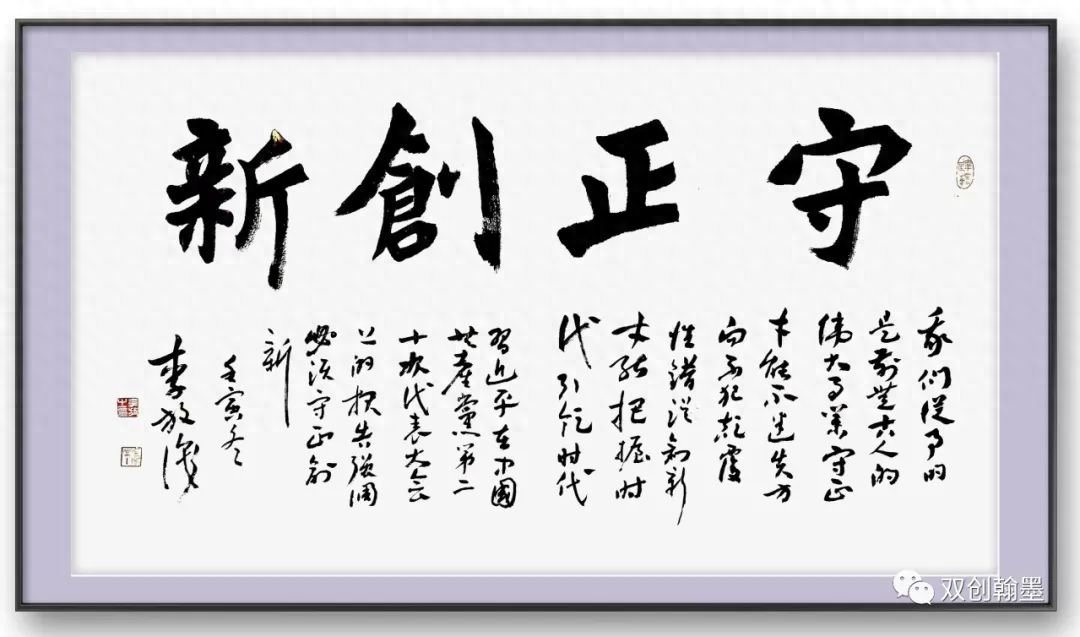 守正創新
我们從事的
是前無古人的
伟大事業守正
才能不迷失方
向不犯颠覆
性错误创新
才能把握时
代引领时代
習近平在中國
共產黨第二
十次代表大会
上的报告强调
必须守正创
新
壬寅冬
李
双创翰墨